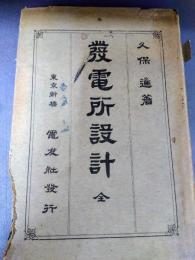 久保進著
發電所設計 全
東京新橋 電友社發行